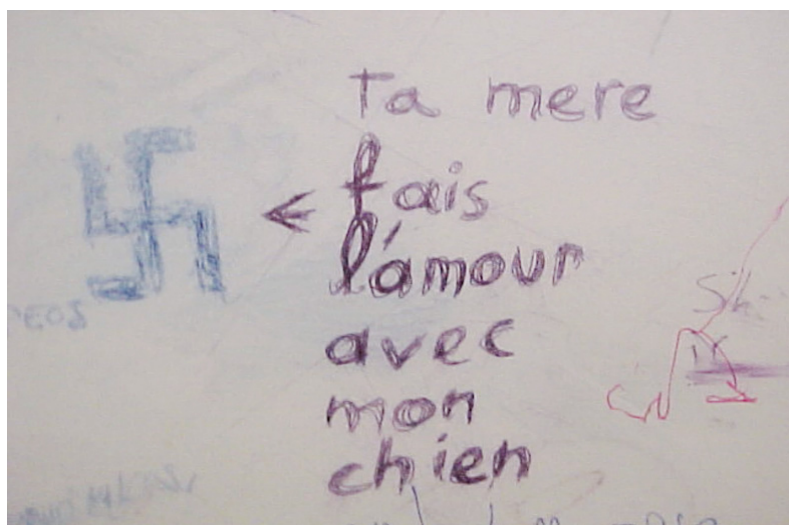 Ta mere
fais
l'amour
avec
mon
chien